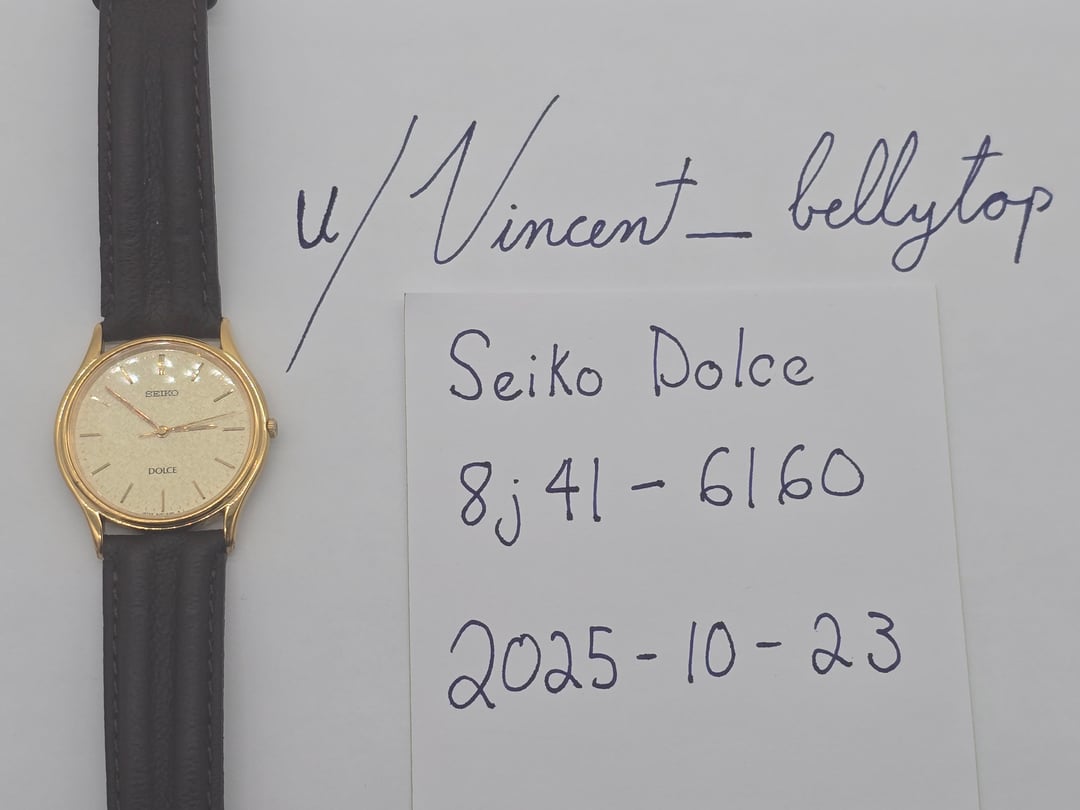 u/Vincent_bellytop
SEIKO
DOLCE
Seiko Dolce
8j41-6160
2025-10-23